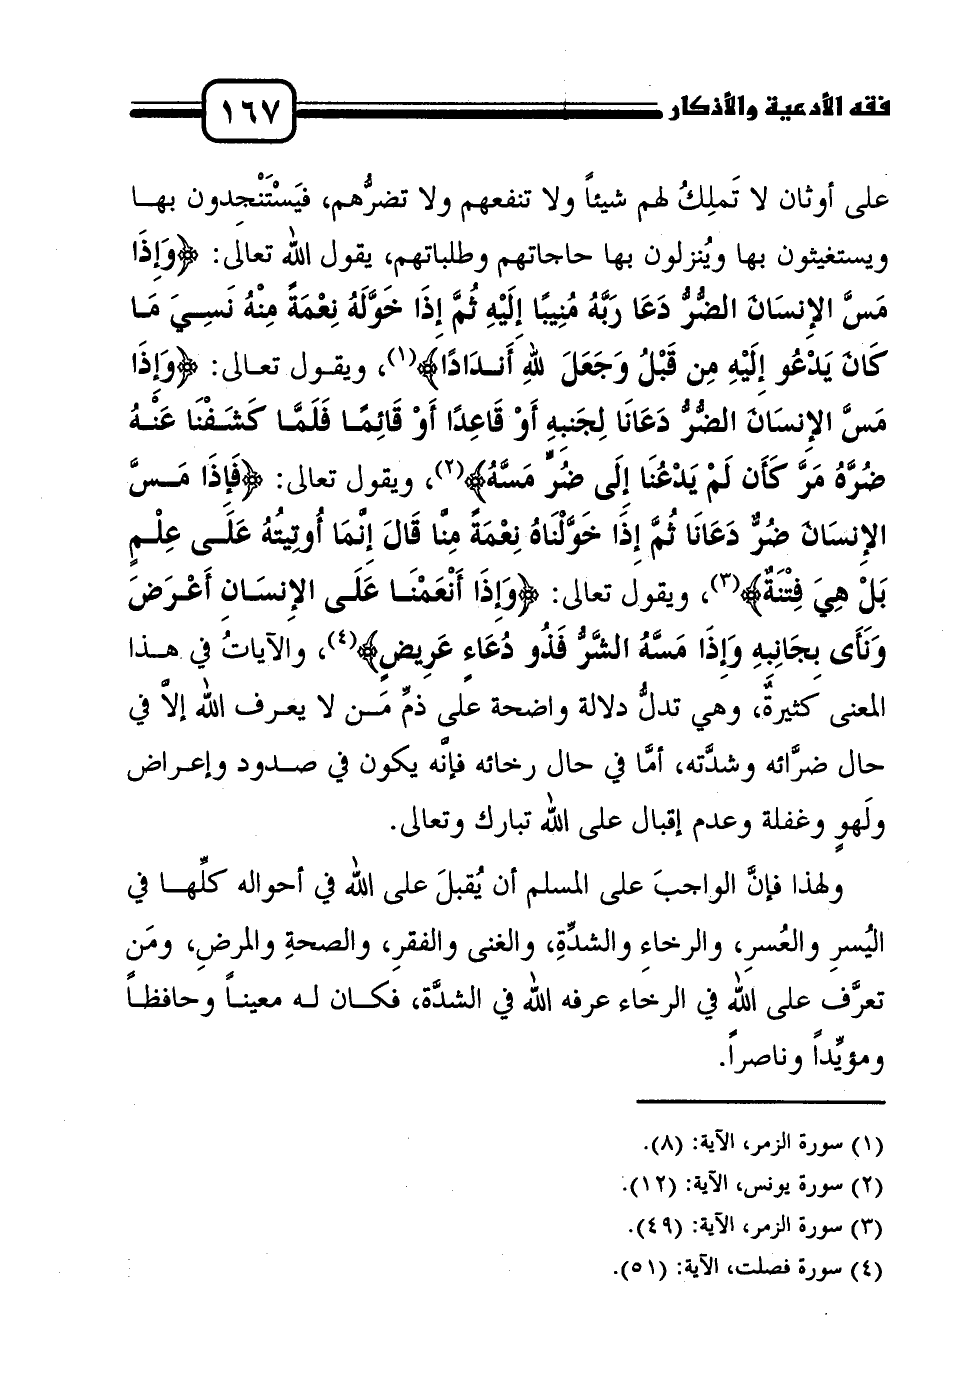 فقه الأدعية والأذكار
١٦٧
على أوثان لا تَملِكُ لهم شيئاً ولا تنفعهم ولا تضرُّهم، فيَسْتَنْجِدون بهـا
ويستغيثون بها ويُنزلون بها حاجاتهم وطلباتهم، يقول الله تعالى: ﴿وَإِذَا
مَسَّ الإِنسَانَ الضُّرُّ دَعَا رَبَّهُ مُنِيبًا إِلَيْهِ ثُمَّ إِذَا خَوَّلَهُ نِعْمَةً مِنْهُ نَسِـيَ مَـا
كَانَ يَدْعُو إِلَيْهِ مِن قَبْلُ وَجَعَلَ للهِ أَنـدَادًا﴾(١)، ويقـول تعـالى: ﴿وَإِذَا
مَسَّ الإِنسَانَ الضُّرُّ دَعَانَا لِجَنبِهِ أَوْ قَاعِدًا أَوْ قَائِمًـا فَلَمَّـا كَشَـفْنَا عَنْـهُ
ضُرَّهُ مَرَّ كَأَن لَمْ يَدْعُنَا إِلَى ضُرٍّ مَسَّهُ﴾(٢)، ويقول تعالى: ﴿فَإِذَا مَـسَّ
الإِنسَانَ ضُرٌّ دَعَانَا ثُمَّ إِذَا خَوَّلْنَاهُ نِعْمَةً مِنَّا قَالَ إِنَّمَا أُوتِيتُهُ عَلَـى عِلْـمٍ
بَلْ هِيَ فِتْنَةٌ﴾(٣)، ويقول تعالى: ﴿وَإِذَا أَنْعَمْنَـا عَلَـى الإِنسَـانِ أَعْـرَضَ
وَنَأَى بِجَانِبِهِ وَإِذَا مَسَّهُ الشَّرُّ فَذُو دُعَاءٍ عَرِيضٍ﴾(٤)، والآياتُ في هـذا
المعنى كثيرةٌ، وهي تدلُّ دلالة واضحة على ذمِّ مَـن لا يعـرف الله إلاَّ في
حال ضرَّائه وشدَّته، أمَّا في حال رخائه فإنَّه يكون في صـدود وإعـراض
ولَهوٍ وغفلة وعدم إقبال على الله تبارك وتعالى.
ولهذا فإنَّ الواجبَ على المسلم أن يُقبلَ على الله في أحواله كلِّهـا في
اليُسرِ والعُسرِ، والرخاءِ والشدَّةِ، والغنى والفقرِ، والصحةِ والمرضِ، ومَن
تعرَّف على الله في الرخاء عرفه الله في الشدَّة، فكـان لـه معينـاً وحافظـاً
ومؤيِّداً وناصراً.
(١) سورة الزمر، الآية: (٨).
(٢) سورة يونس، الآية: (١٢).
(٣) سورة الزمر، الآية: (٤٩).
(٤) سورة فصلت، الآية: (٥١).